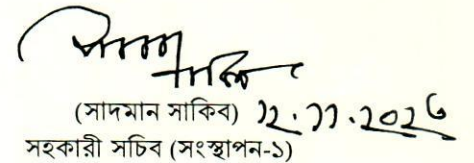 (সাদমান সাকিব) ১২.১১.২০২৫
সহকারী সচিব (সংস্থাপন-১)